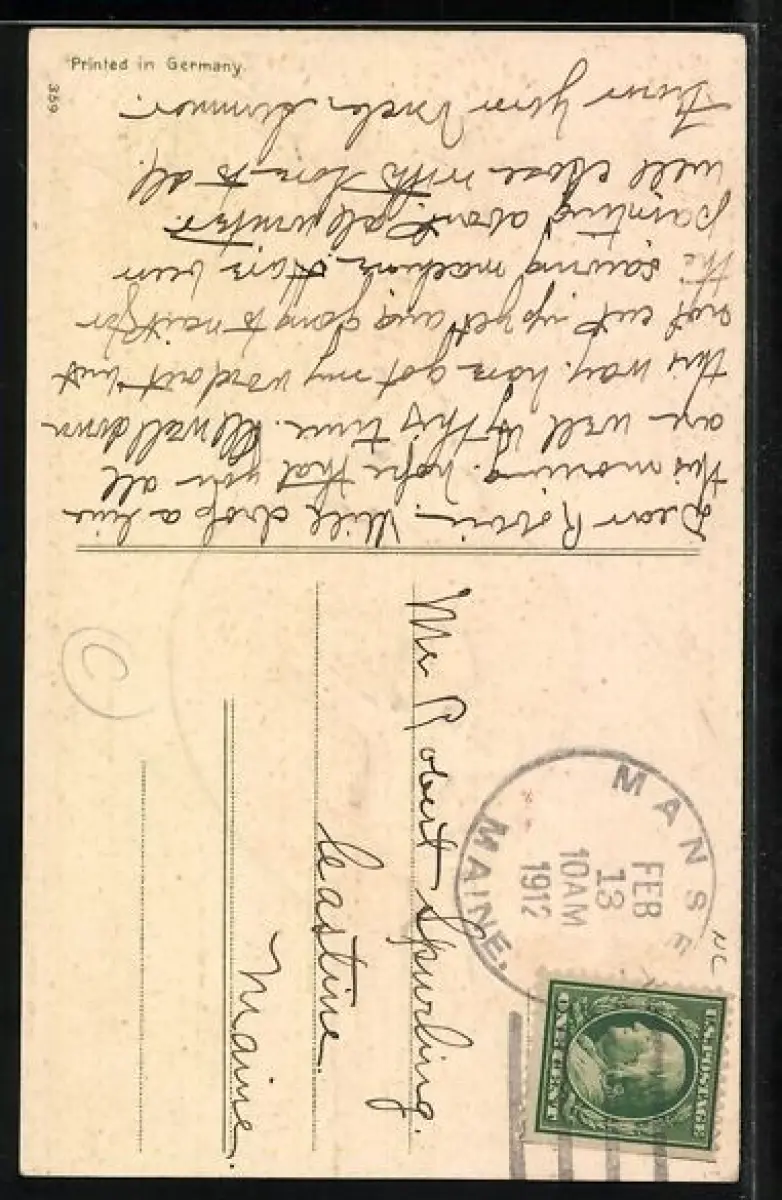 Printed in Germany.
359
Dear Robbie. Will drop a line
this morning. hope that you all
are well by this time. All well down
this way. have got my wood out but
not cut up yet and going to wait for
the sawing machine. Have been
painting about all winter.
well close with love to all.
From your Uncle
Mr Robert Spurling.
Castine.
Maine.
MANSE
MAINE.
FEB
13
10AM
1912
U.S. POSTAGE
ONE CENT
NC
C